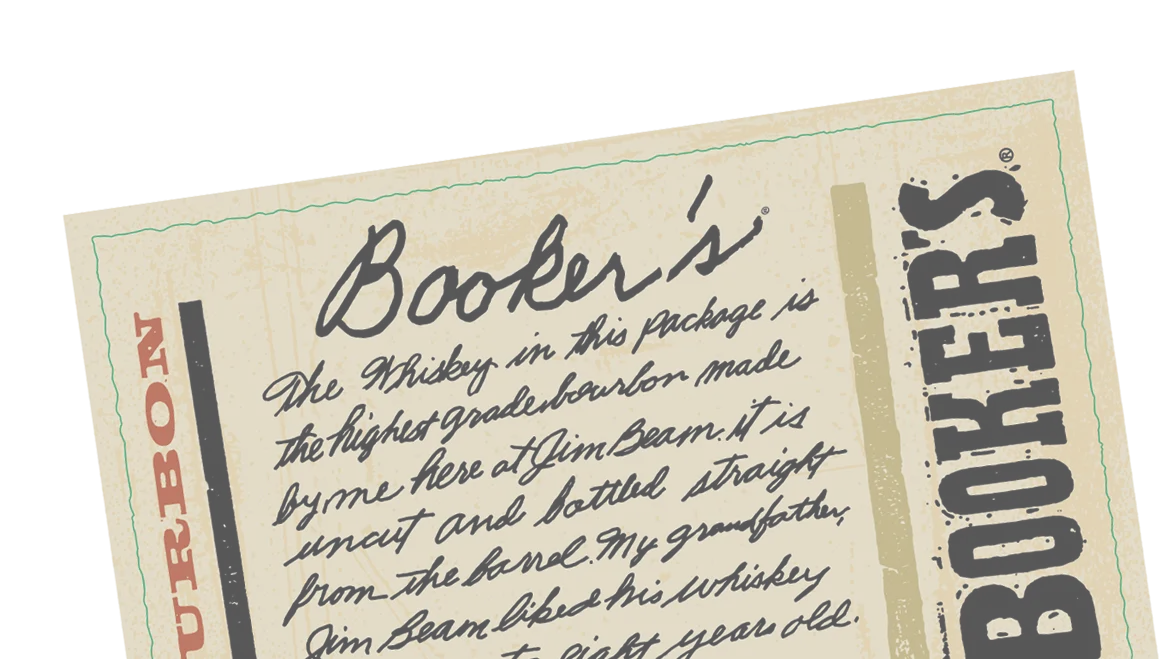 Booker's®
The Whiskey in this package is
the highest grade bourbon made
by me here at Jim Beam. it is
uncut and bottled straight
from the barrel. My grandfather,
Jim Beam liked his whiskey
eight years old.
URBON
BOOKER'S®